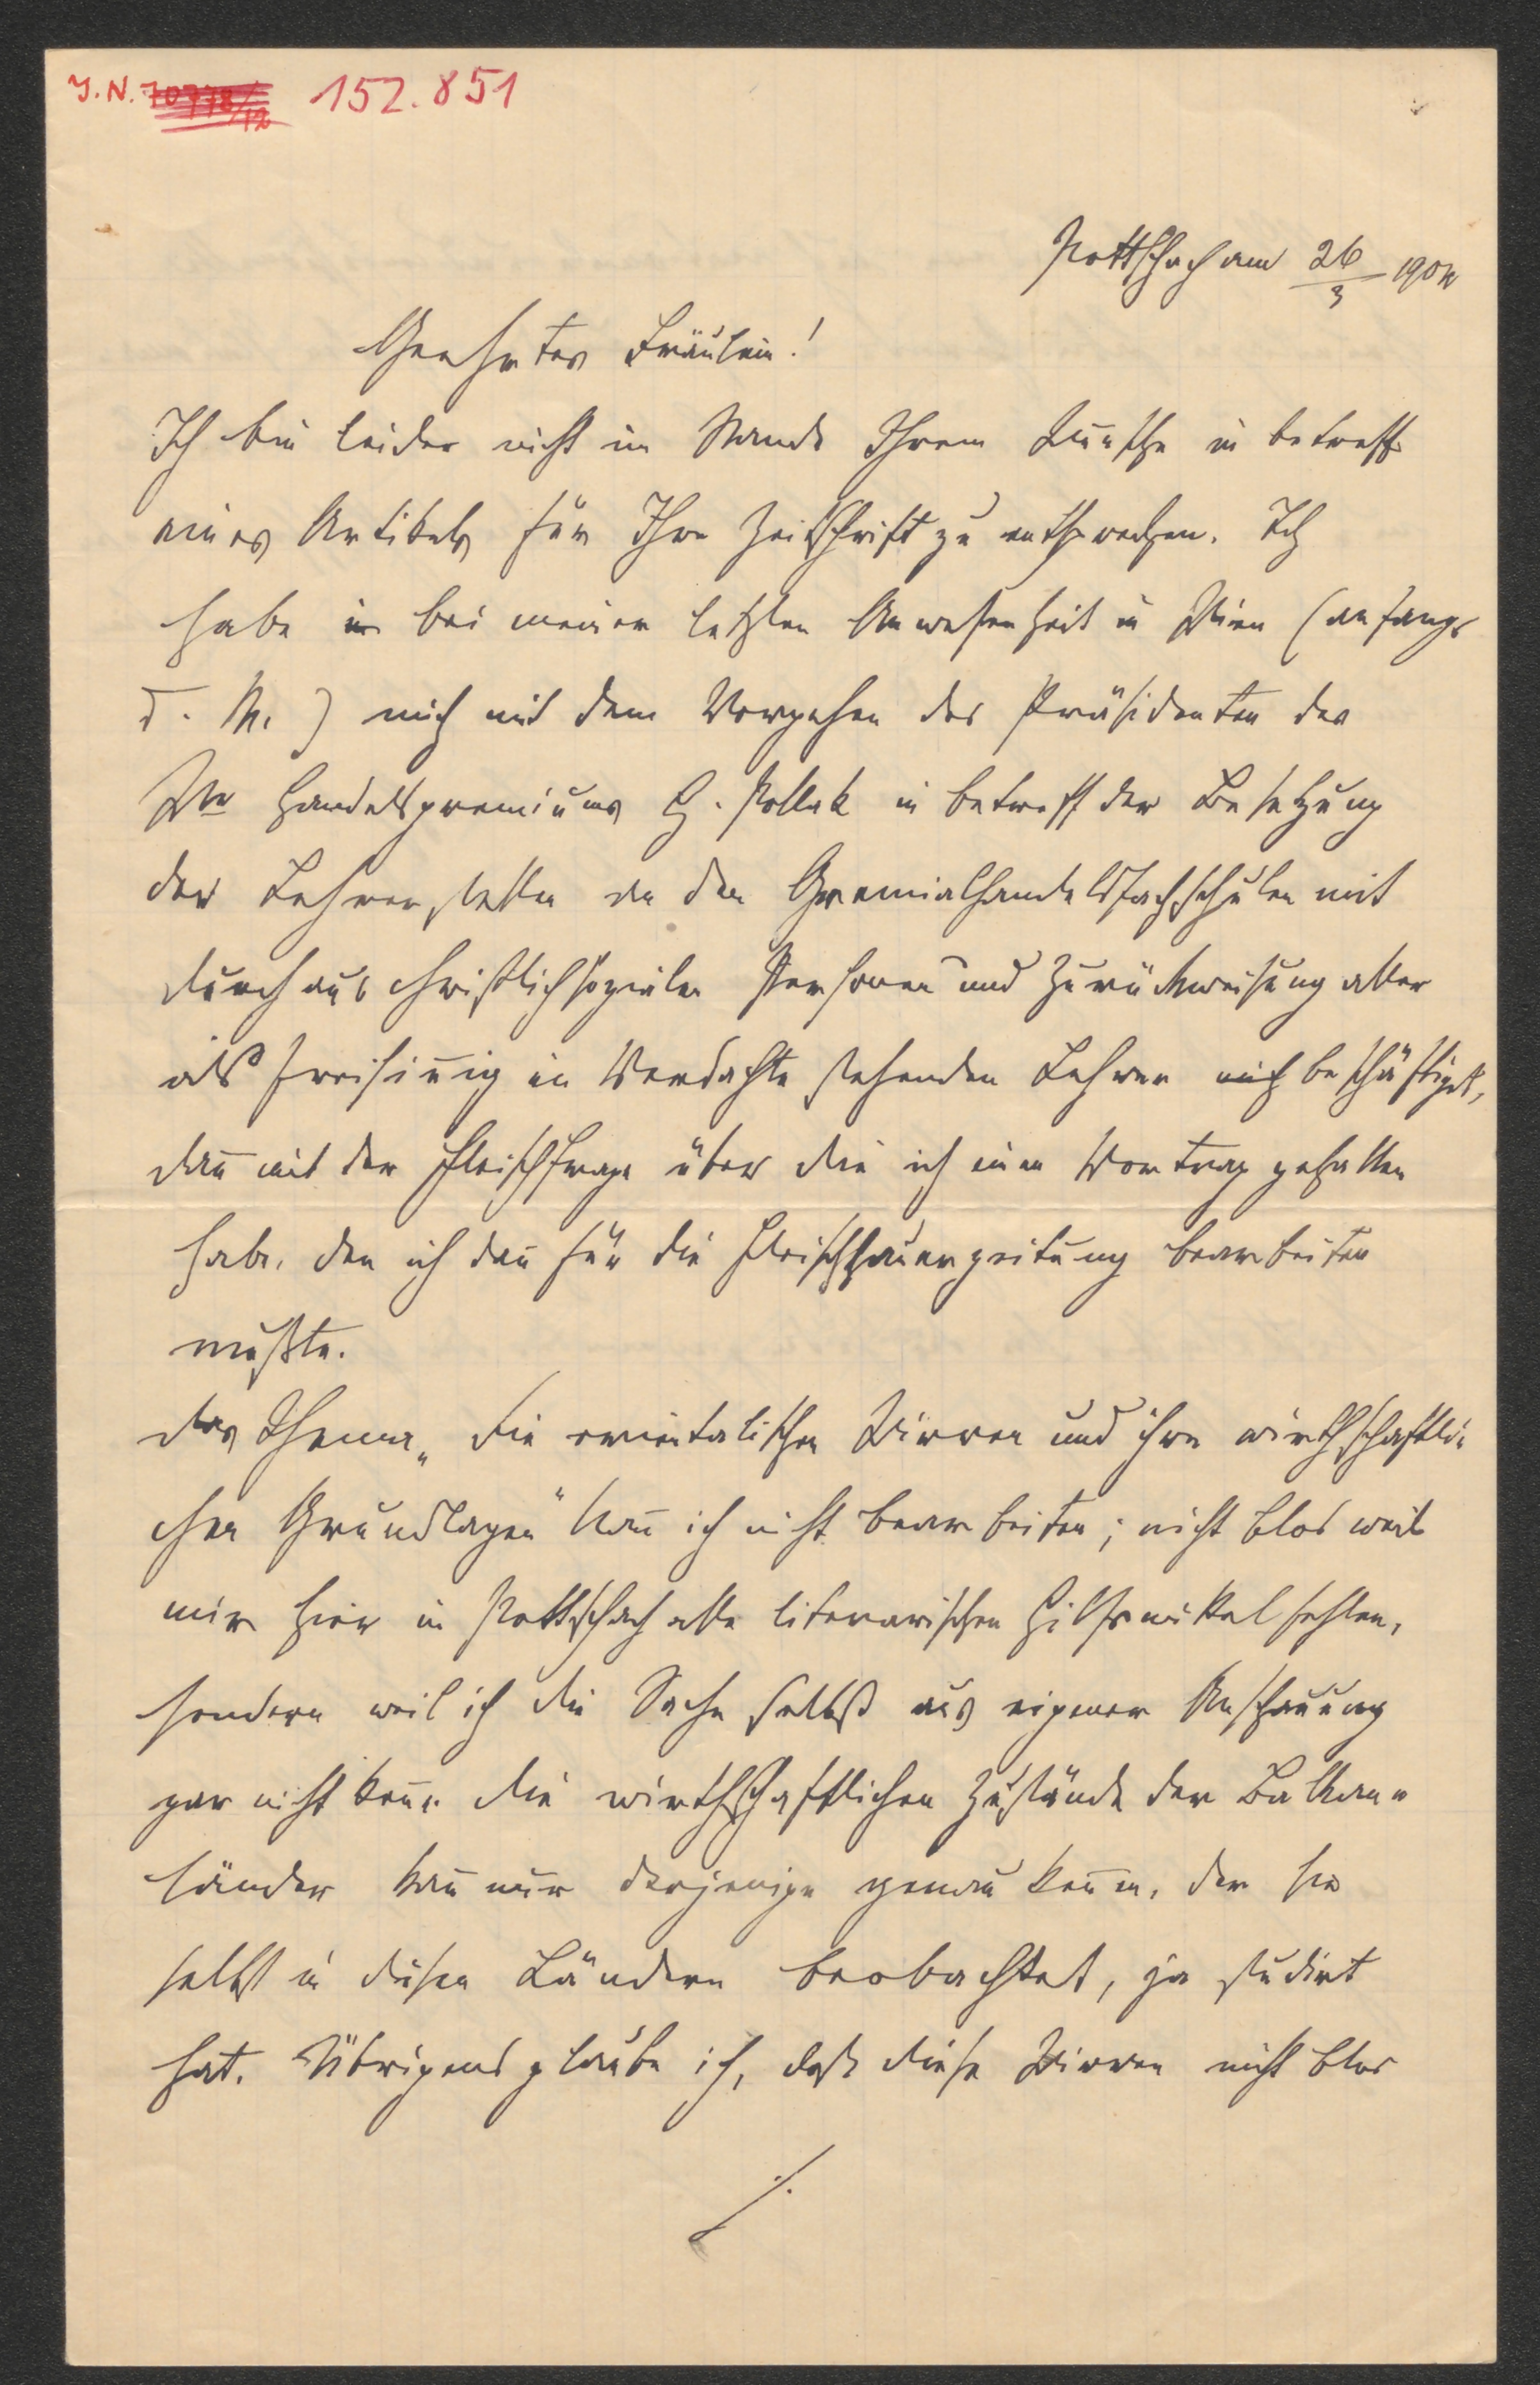 J. N. 70778/12 152.851
Pottschach am 26/3 1904
Geehrtes Fräulein!
Ich bin leider nicht im Stande Ihrem Wunsche in betreff
eines Artikels für Ihre Zeitschrift zu entsprechen. Ich
habe in bei meiner letzten Anwesenheit in Wien (anfangs
d. M.) mich mit dem Vorgehen des Präsidenten des
Wr Handelsgremiums H. Pollak in betreff der Besetzung
der Lehrerstellen an den Gremialhandelsfachschulen mit
durchaus christlichsozialen Personen und Zurückweisung aller
als freisinnig in Verdachte stehenden Lehrer mich beschäftigt,
dañ mit der Fleischfrage über die ich einen Vortrag gehalten
habe, den ich dañ für die Fleischhauerzeitung bearbeiten
mußte.
Das Thema „Die orientalischen Wirren und ihre wirthschaftli-
chen Grundlagen" kañ ich nicht bearbeiten; nicht blos weil
mir hier in Pottschach alle literarischen Hilfsmittel fehlen,
sondern weil ich die Sache selbst aus eigener Anschauung
gar nicht keñe. Die wirthschaftlichen Zustände der Balkan-
länder kañ nur derjenige genau keñen, der sie
selbst in diesen Ländern beobachtet, ja studirt
hat. Übrigens glaube ich, daß diese Wirren nicht blos
./.